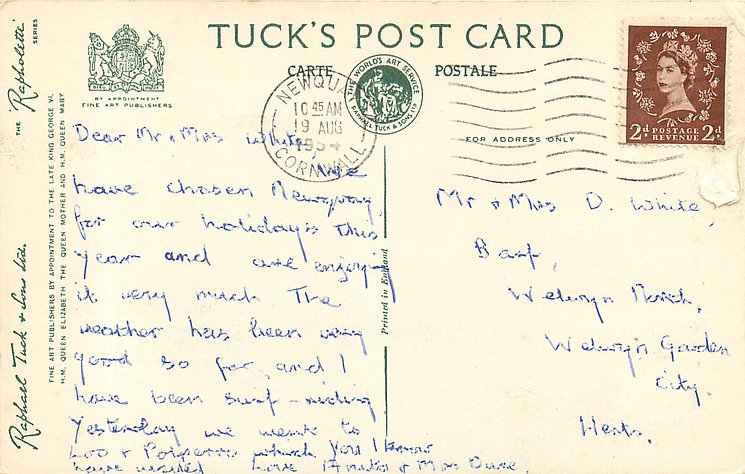 TUCK'S POST CARD
CARTE POSTALE
BY APPOINTMENT
FINE ART PUBLISHERS
THE WORLD'S ART SERVICE
RAPHAEL TUCK & SONS LTD
NEWQUAY
10 45 AM
19 AUG
1954
CORNWALL
2d POSTAGE REVENUE 2d
FOR ADDRESS ONLY
THE "Rapholette" SERIES
Raphael Tuck & Sons Ltd.
FINE ART PUBLISHERS BY APPOINTMENT TO THE LATE KING GEORGE VI,
H.M. QUEEN ELIZABETH THE QUEEN MOTHER AND H.M. QUEEN MARY
Printed in England
Dear Mr & Mrs White,
We
have chosen Newquay
for our holidays this
year and are enjoying
it very much. The
weather has been very
good so far, and I
have been surf-riding.
Yesterday we went to
Loo & Polperro which you I know
have visited. Love & Mrs
Mr & Mrs D. White,
Welwyn North,
Welwyn Garden
City.
Herts.